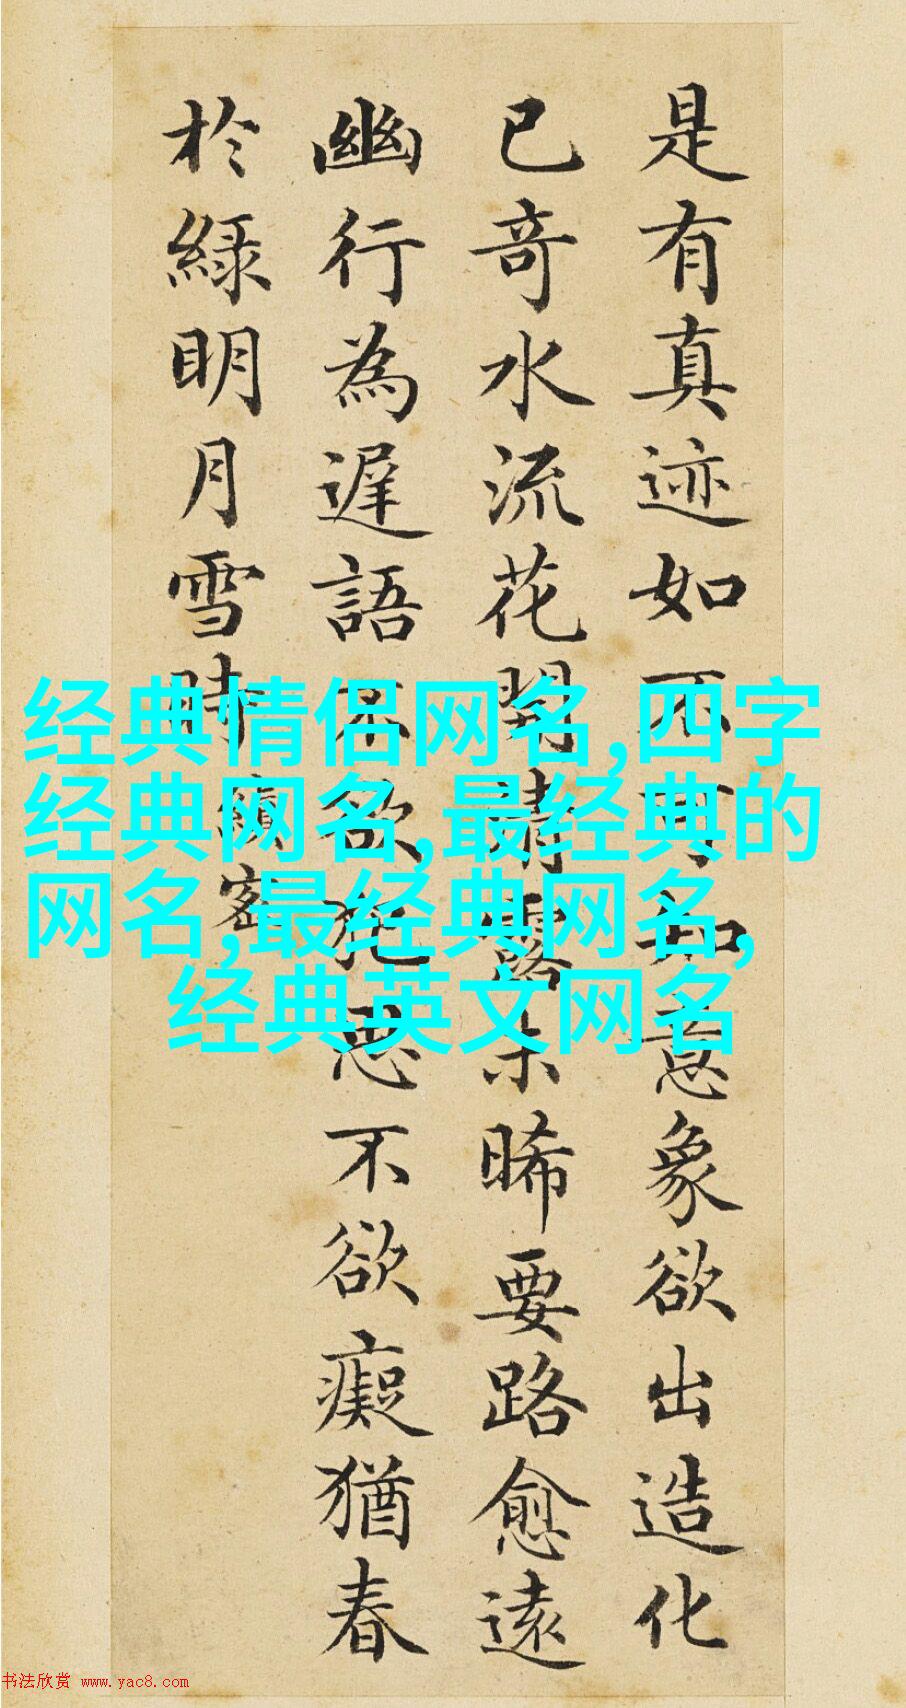 是有真迹如不可知意象欲出造化
已奇水流花開清露未晞要路愈遠
幽行為遲語不欲犯思不欲癡猶春
於綠明月雪時 縝密
经典情侣网名,四字
经典网名,最经典的
网名,最经典网名,
经典英文网名
书法欣赏 www.yac8.com